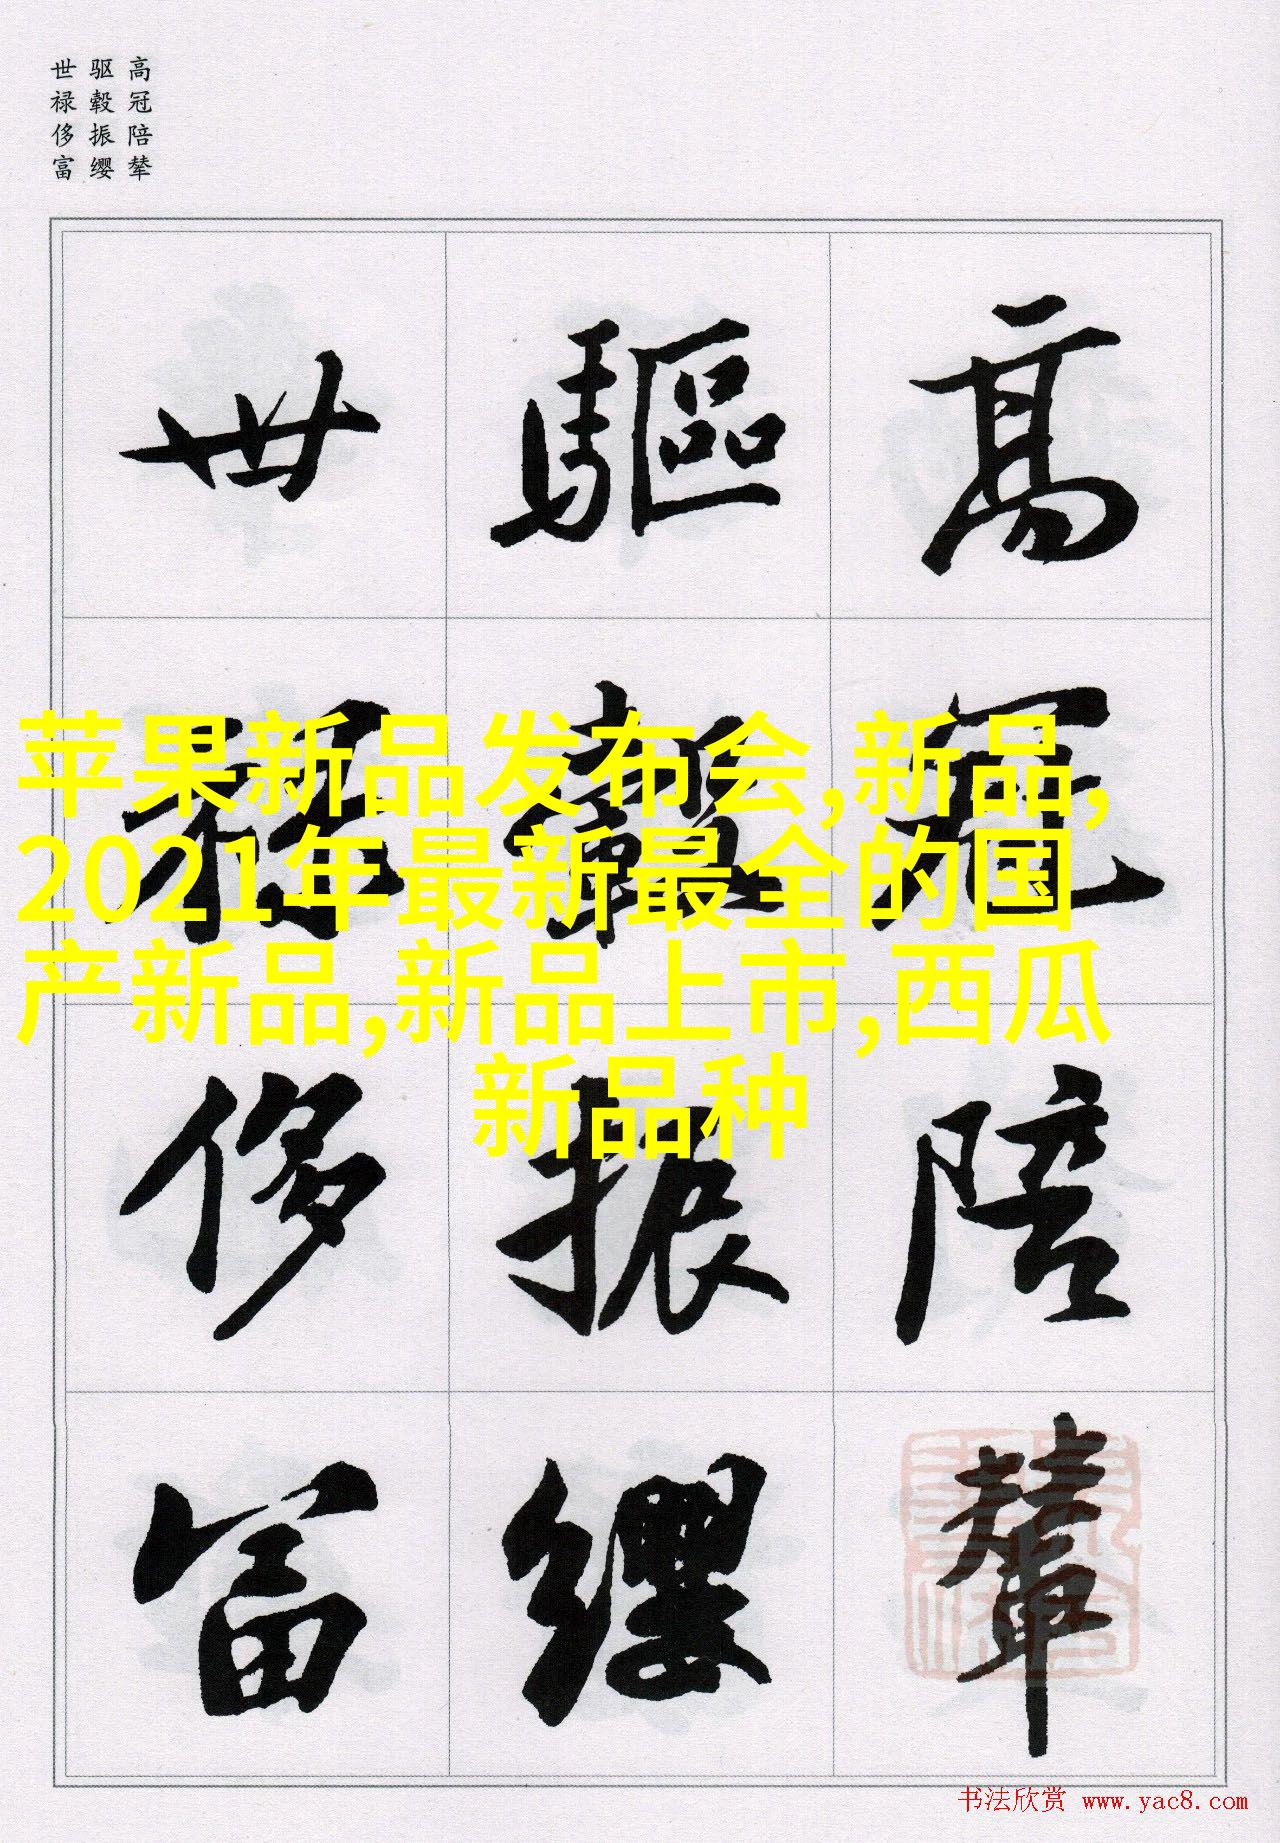 高冠陪辇
驱毂振缨
世禄侈富
高冠陪輦
驅轂振纓
世禄侈富
苹果新品发布会,新品,
2021年最新最全的国
产新品,新品上市,西瓜
新品种
书法欣赏 www.yac8.com